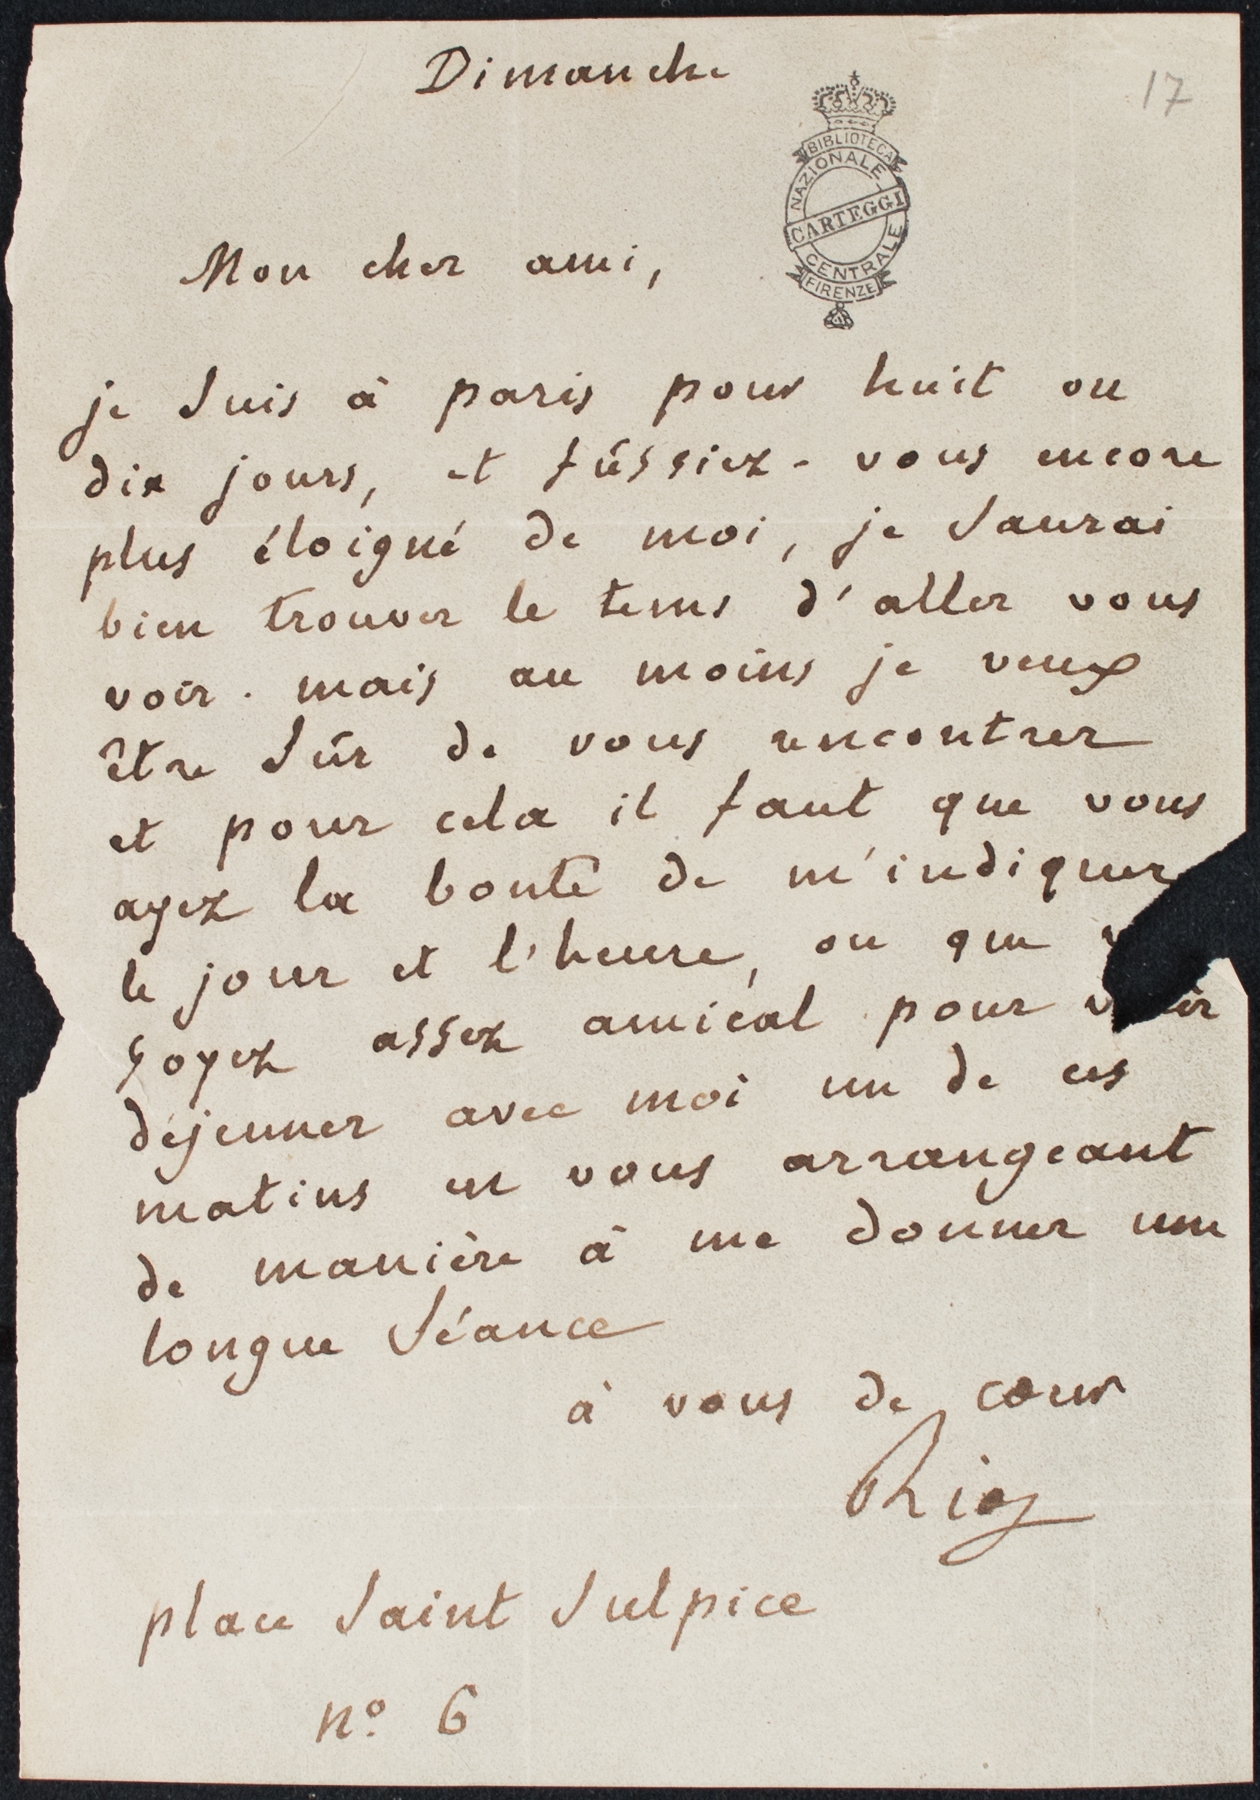 Dimanche
17
BIBLIOTECA
NAZIONALE
CARTEGGI
CENTRALE
FIRENZE
Mon cher ami,
je suis à paris pour huit ou
dix jours, et fússiez-vous encore
plus éloigné de moi, je saurai
bien trouver le tems d'aller vous
voir. mais au moins je veux
être sûr de vous rencontrer
et pour cela il faut que vous
ayez la bonté de m'indiquer
le jour et l'heure, ou que
soyez assez amical pour
déjeuner avec moi un de ces
matins en vous arrangeant
de manière à me donner une
longue séance
à vous de cœur
Rio
place Saint Sulpice
nº 6